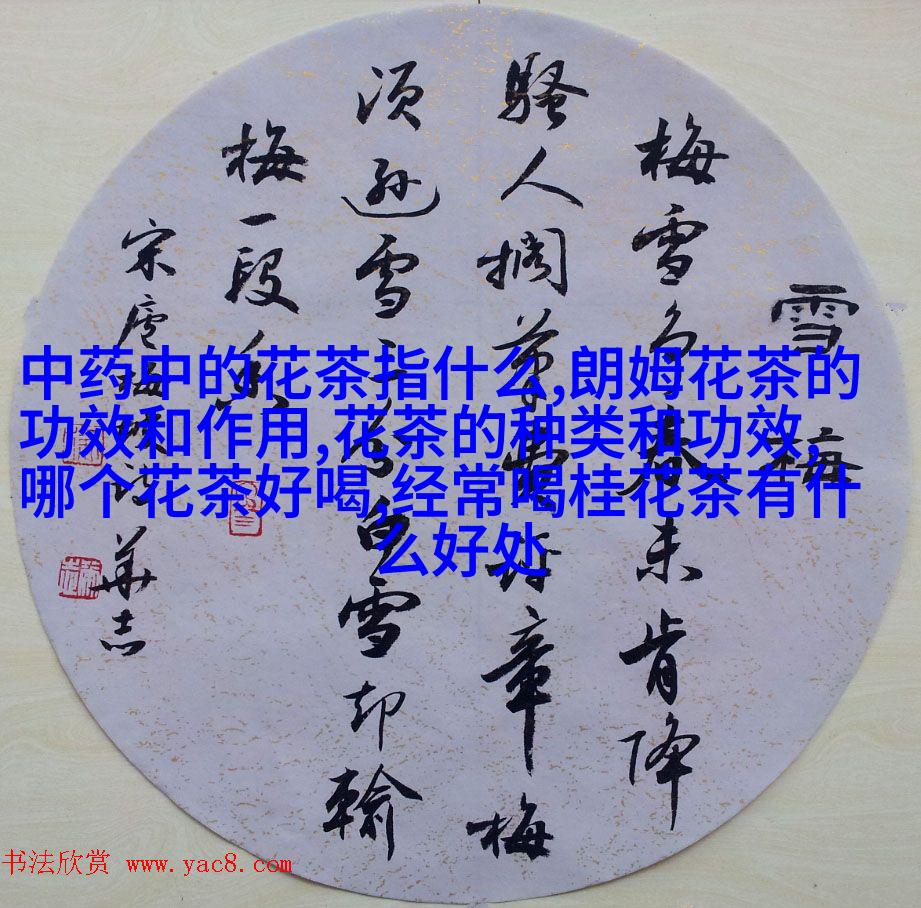 雪梅
梅雪争春未肯降
騷人搁筆费评章梅
须遜雪三分白雪却輸
梅一段香
宋盧梅坡诗 華志
中药中的花茶指什么,朗姆花茶的
功效和作用,花茶的种类和功效,
哪个花茶好喝,经常喝桂花茶有什
么好处
书法欣赏 www.yac8.com